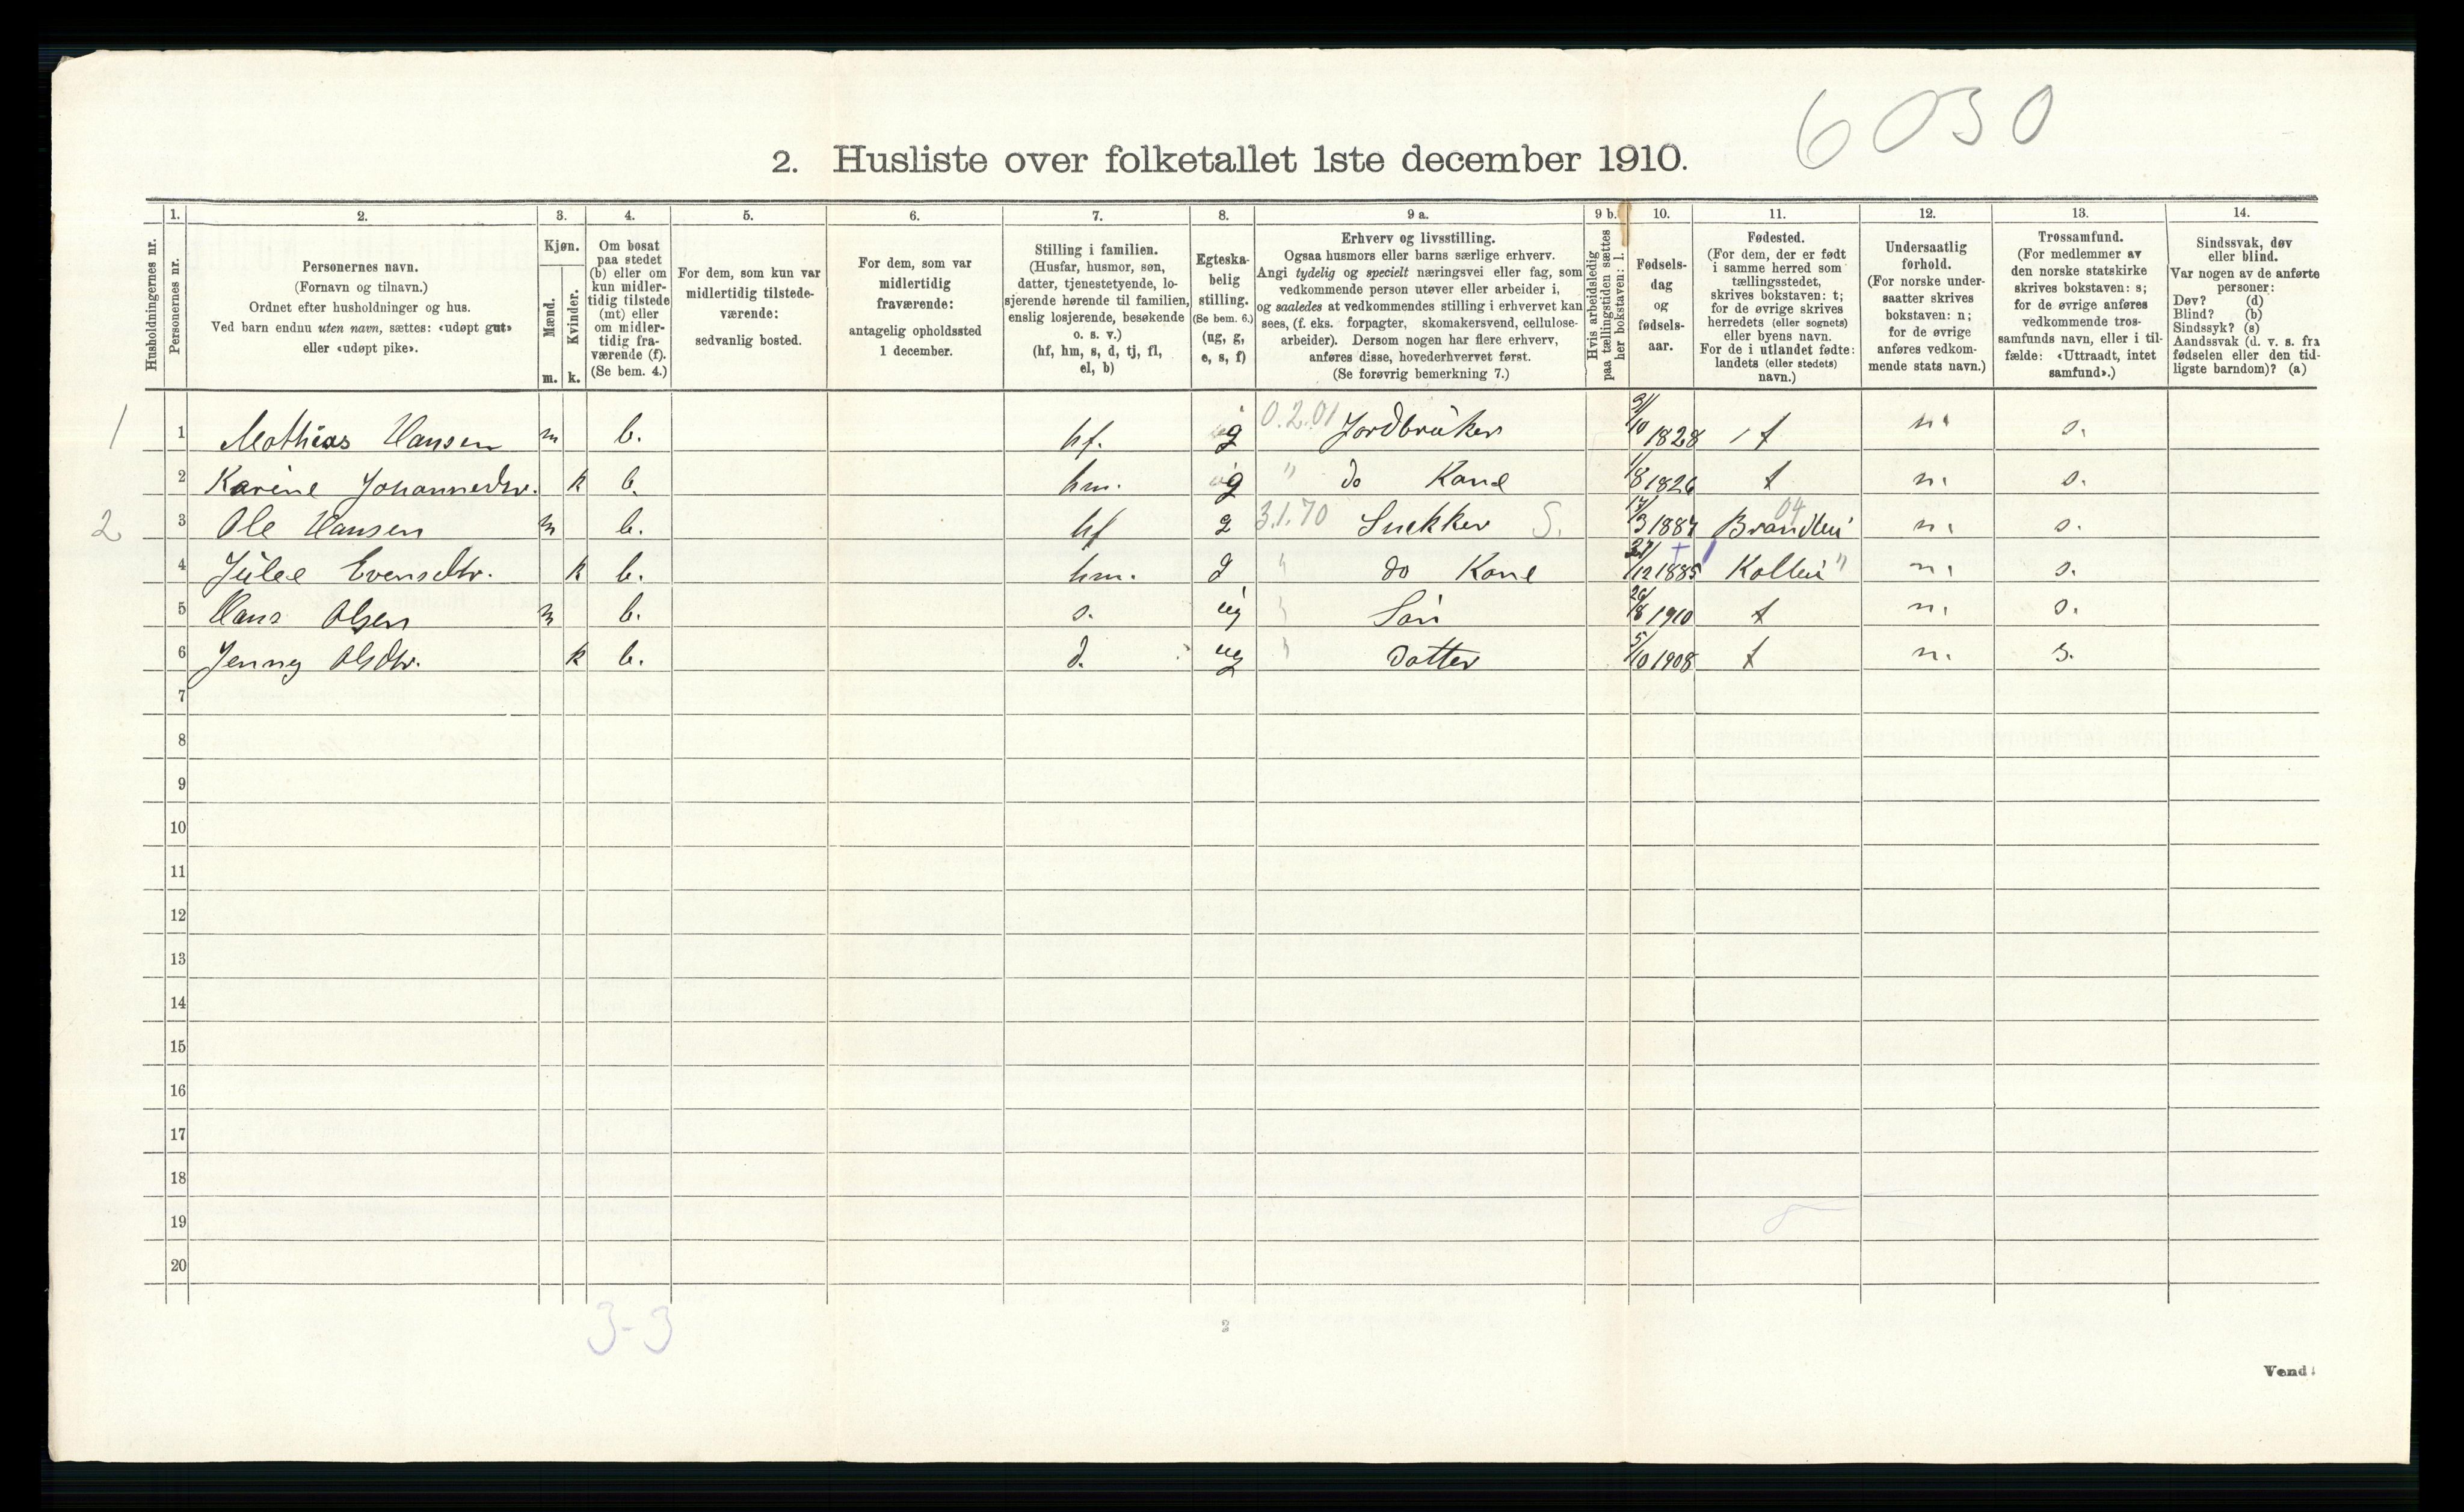 6030
2. Husliste over folketallet 1ste december 1910.
Husholdningernes nr.
1. Personernes nr.
2. Personernes navn.
(Fornavn og tilnavn.)
Ordnet efter husholdninger og hus.
Ved barn endnu uten navn, sættes: «udøpt gut»
eller «udøpt pike».
3. Kjøn.
Mænd. m.
Kvinder. k.
4. Om bosat
paa stedet
(b) eller om
kun midler-
tidig tilstede
(mt) eller
om midler-
tidig fra-
værende (f).
(Se bem. 4.)
5. For dem, som kun var
midlertidig tilstede-
værende:
sedvanlig bosted.
6. For dem, som var
midlertidig
fraværende:
antagelig opholdssted
1 december.
7. Stilling i familien.
(Husfar, husmor, søn,
datter, tjenestetyende, lo-
sjerende hørende til familien,
enslig losjerende, besøkende
o. s. v.)
(hf, hm, s, d, tj, fl,
el, b)
8. Egteska-
belig
stilling.
(Se bem. 6.)
(ug, g,
e, s, f)
9 a. Erhverv og livsstilling.
Ogsaa husmors eller barns særlige erhverv.
Angi tydelig og specielt næringsvei eller fag, som
vedkommende person utøver eller arbeider i,
og saaledes at vedkommendes stilling i erhvervet kan
sees, (f. eks. forpagter, skomakersvend, cellulose-
arbeider). Dersom nogen har flere erhverv,
anføres disse, hovederhvervet først.
(Se forøvrig bemerkning 7.)
9 b. Hvis arbeidsledig
paa tællingstiden sættes
her bokstaven: l.
10. Fødsels-
dag
og
fødsels-
aar.
11. Fødested.
(For dem, der er født
i samme herred som
tællingsstedet,
skrives bokstaven: t;
for de øvrige skrives
herredets (eller sognets)
eller byens navn.
For de i utlandet fødte:
landets (eller stedets)
navn.)
12. Undersaatlig
forhold.
(For norske under-
saatter skrives
bokstaven: n;
for de øvrige
anføres vedkom-
mende stats navn.)
13. Trossamfund.
(For medlemmer av
den norske statskirke
skrives bokstaven: s;
for de øvrige anføres
vedkommende tros-
samfunds navn, eller i til-
fælde: «Uttraadt, intet
samfund».)
14. Sindssvak, døv
eller blind.
Var nogen av de anførte
personer:
Døv? (d)
Blind? (b)
Sindssyk? (s)
Aandssvak (d. v. s. fra
fødselen eller den tid-
ligste barndom)? (a)
1 1 Mathias Hansen m b. hf. g 0.2.01 Jordbruker 1828 t n. s.
2 Karine Johannesdtr. k b. hm. g " do Kone 1/8 1826 t n. s.
2 3 Ole Hansen m b. hf g 3.1.70 Snekker S. 17/3 1887 Brandbu 04 n. s.
4 Julie Evensdtr. k b. hm. g " do Kone 27/12 1885 Kolbu " n. s.
5 Hans Olsen m b. s. ug " Sön 26/8 1910 t n. s.
6 Jenny Olsdtr. k b. d. ug " Datter 5/10 1908 t n. s.
7
8
9
10
11
12
13
14
15
16
17
18
19
20
3-3
2
Vend!